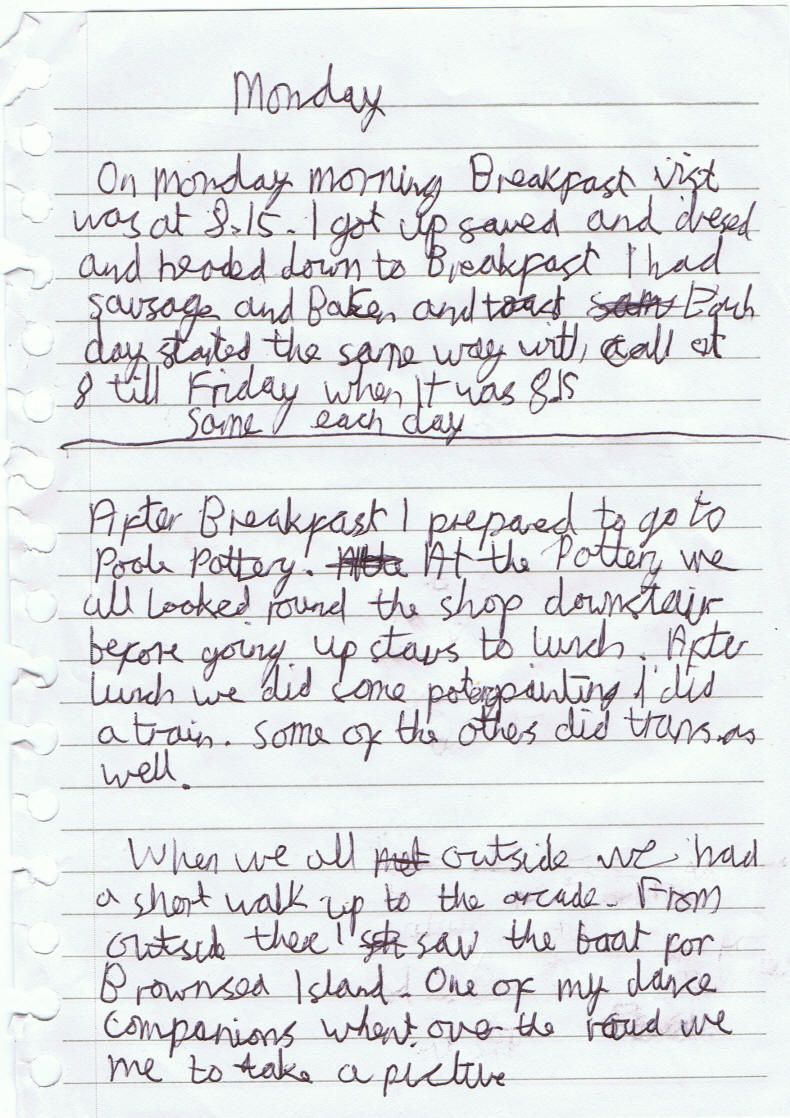 Monday
On Monday morning Breakfast vist
was at 8.15. I got up saved and dresed
and headed down to Breakfast I had
sausage and Baken and toast Each
day started the same way with call at
8 till Friday when it was 8.15
same each day
After Breakfast I prepared to go to
Poole Pottery. At the Pottery we
all looked round the shop downstair
before going up stairs to lunch. After
lunch we did some poterypainting I did
a train. Some of the others did trans as
well.
When we all met outside we had
a short walk up to the arcade. From
outside there I saw the boat for
Brownsea Island. One of my dance
companions whent over the road we
me to take a picture